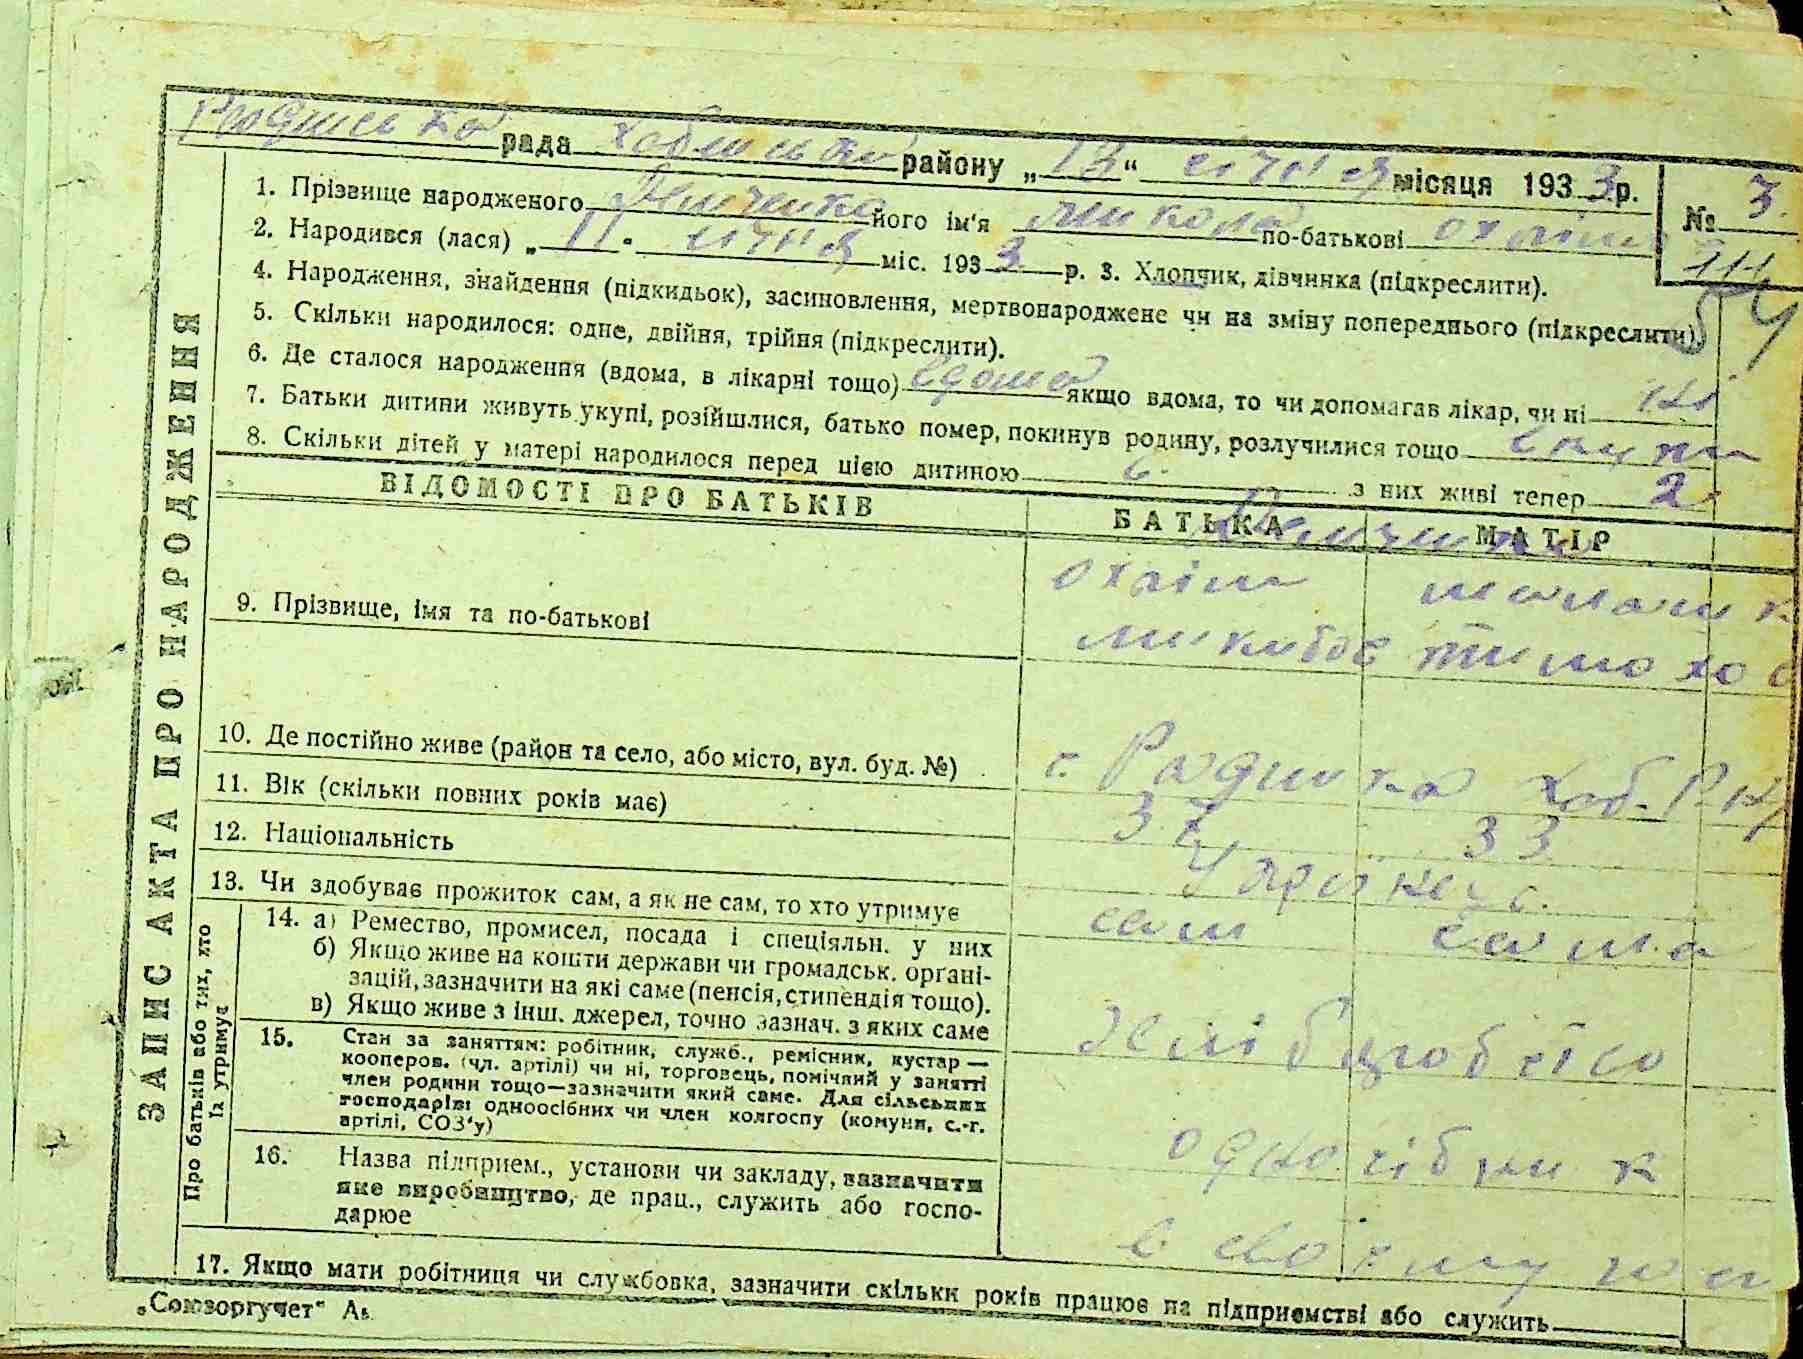 Радинська рада Хабенського району „13“ січня місяця 1933 р.
№ 3.
1. Прізвище народженого його ім'я Микола по-батькові Охрім
2. Народився (лася) „11“ січня міс. 1933 р. 3. Хлопчик, дівчинка (підкреслити).
4. Народження, знайдення (підкидьок), засиновлення, мертвонароджене чи на зміну попереднього (підкреслити).
5. Скільки народилося: одне, двійня, трійня (підкреслити).
6. Де сталося народження (вдома, в лікарні тощо) вдома якщо вдома, то чи допомагав лікар, чи ні ні
7. Батьки дитини живуть укупі, розійшлися, батько помер, покинув родину, розлучилися тощо вкупи
8. Скільки дітей у матері народилося перед цією дитиною 6. з них живі тепер 2.
ЗАПИС АКТА ПРО НАРОДЖЕННЯ
ВІДОМОСТІ ПРО БАТЬКІВ
БАТЬКА
МАТІР
9. Прізвище, імя та по-батькові
Охрім
10. Де постійно живе (район та село, або місто, вул. буд. №)
с. Радинка Хаб. Р-ну
11. Вік (скільки повних років має)
33
12. Національність
13. Чи здобуває прожиток сам, а як не сам, то хто утримує
сам сама
Про батьків або тих, хто
їх утримує
14. а) Ремество, промисел, посада і спеціяльн. у них
б) Якщо живе на кошти держави чи громадськ. органі-
зацій, зазначити на які саме (пенсія, стипендія тощо).
в) Якщо живе з інш. джерел, точно зазнач. з яких саме
хліборобство
15. Стан за заняттям: робітник, служб., ремісник, кустар —
кооперов. (чл. артілі) чи ні, торговець, помічний у занятті
член родини тощо—зазначити який саме. Для сільських
господарів: одноосібних чи член колгоспу (комуни, с.-г.
артілі, СОЗ'у)
одноосібник
16. Назва підприєм., установи чи закладу, зазначити
яке виробництво, де прац., служить або госпо-
дарює
в своєму
17. Якщо мати робітниця чи службовка, зазначити скільки років працює на підприємстві або служить
„Союзоргучет“